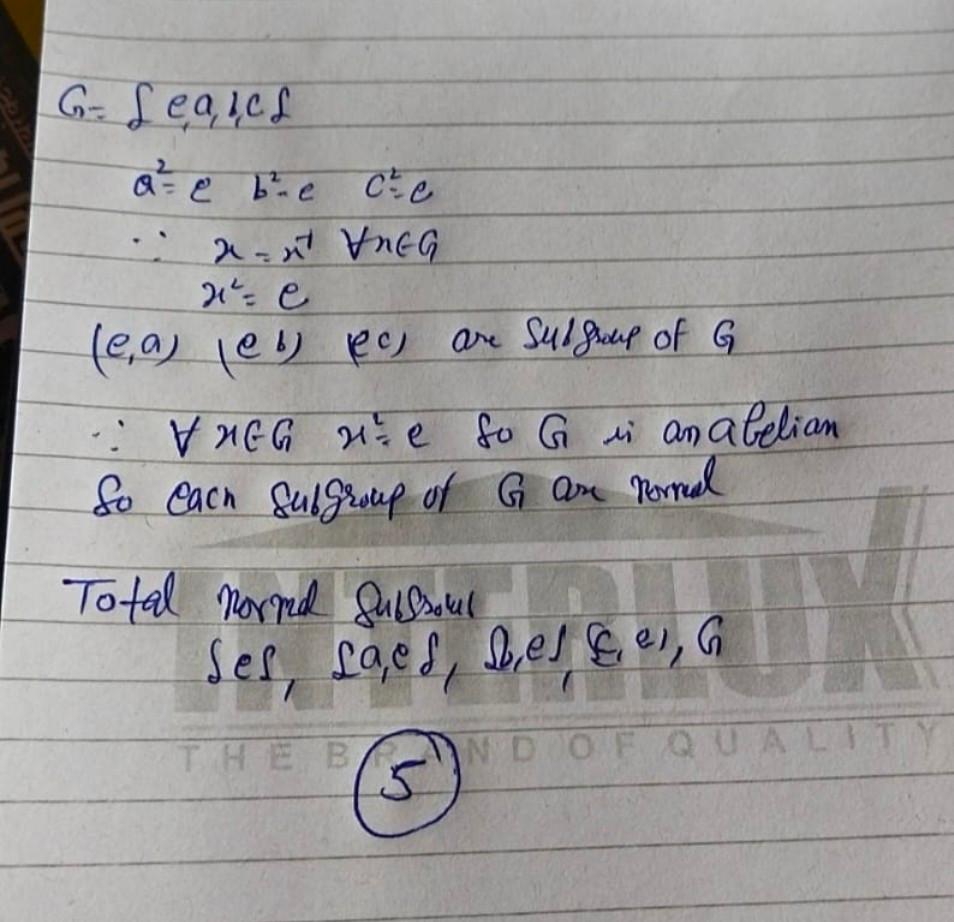 G = {e,a,b,c}
a² = e b² = e c² = e
∵ x = x⁻¹ ∀x∈G
x² = e
(e,a) (e b) (e c) are Subgroup of G
∵ ∀ x∈G x² = e So G is an abelian
So each Subgroup of G are normal
Total normal Subgroup
{e}, {a,e}, {b,e}, {c,e}, G
5
INTERLUX
THE BRAND OF QUALITY